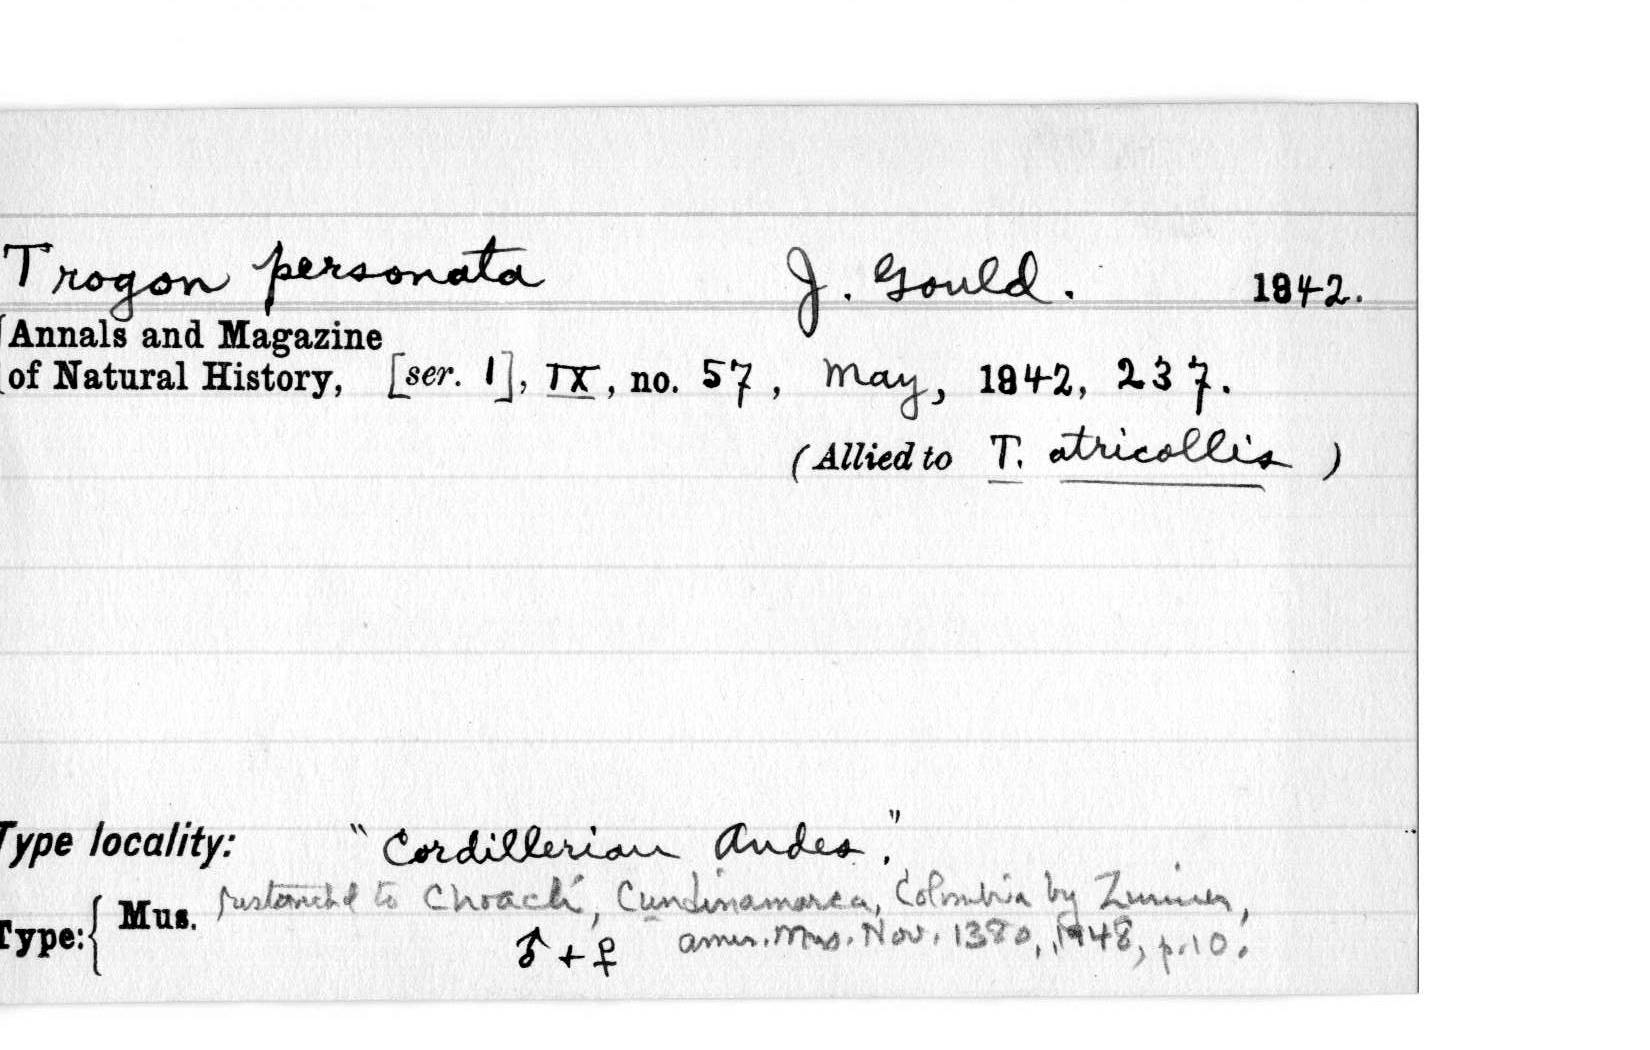 Trogon personata J. Gould. 1842.
[Annals and Magazine
of Natural History, [ser. 1], IX, no. 57, May, 1842, 237.
(Allied to T. atricollis)
Type locality: "Cordillerian Andes."
Type: { Mus. restricted to Choachi, Cundinamarca, Colombia by Zimmer,
♂ + ♀ Amer. Mus. Nov. 1380, 1948, p. 10.